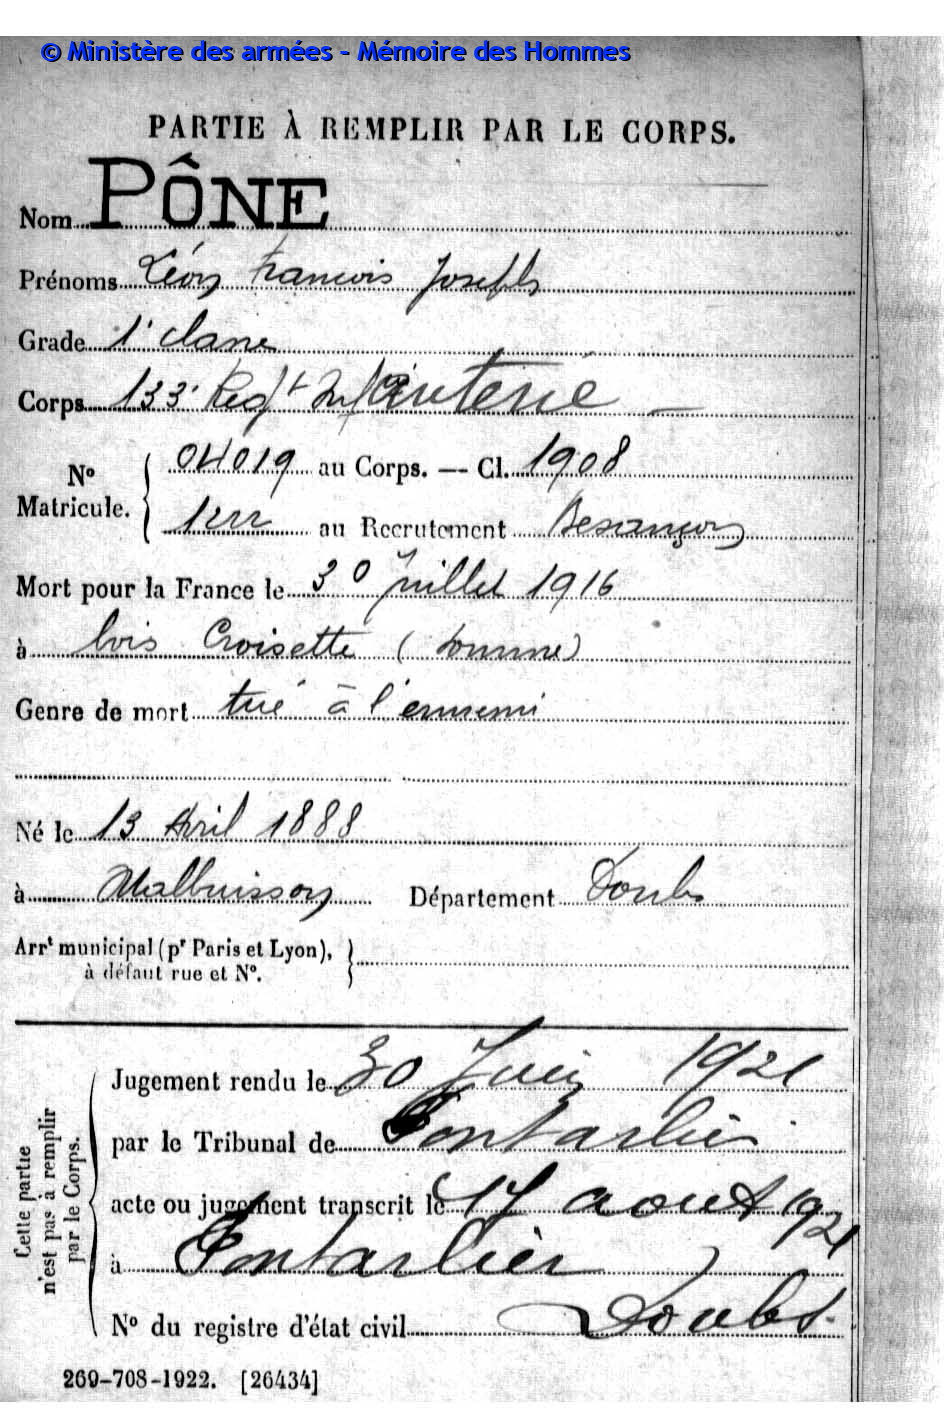 © Ministère des armées - Mémoire des Hommes
PARTIE À REMPLIR PAR LE CORPS.
Nom PÔNE
Prénoms Léon François Joseph
Grade 1e classe
Corps 133e Regt Infanterie
No Matricule. { 04019 au Corps. — Cl. 1908
au Recrutement Besançon
Mort pour la France le 30 Juillet 1916
à bois Croisette (Somme)
Genre de mort tué à l'ennemi
Né le 13 Avril 1888
à Malbuisson Département Doubs
Arrt municipal (pr Paris et Lyon),
à défaut rue et No.
Cette partie n'est pas à remplir par le Corps.
Jugement rendu le 30 Juin 1921
par le Tribunal de Pontarlier
acte ou jugement transcrit le 17 aout 1921
à Pontarlier
No du registre d'état civil Doubs.
269-708-1922. [26434]